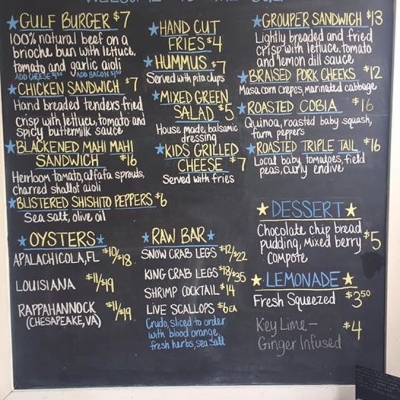 WELCOME TO THE GULF
★GULF BURGER $7
100% natural beef on a
brioche bun with lettuce,
tomato and garlic aioli
★CHICKEN SANDWICH $7
Hand breaded tenders fried
crisp with lettuce, tomato and
spicy buttermilk sauce
★BLACKENED MAHI MAHI
SANDWICH $16
Heirloom tomato, alfalfa sprouts,
charred shallot aioli
★BLISTERED SHISHITO PEPPERS $6
Sea salt, olive oil
★OYSTERS★
APALACHICOLA, FL $10/$18
LOUISIANA $11/$19
RAPPAHANNOCK $11/$19
(CHESAPEAKE, VA)
★HAND CUT
FRIES $4
★HUMMUS $7
Served with pita chips
★MIXED GREEN
SALAD $5
House made, balsamic
dressing
★KIDS GRILLED
CHEESE $7
Served with fries
★RAW BAR★
SNOW CRAB LEGS $12/$22
KING CRAB LEGS $18/$35
SHRIMP COCKTAIL $14
LIVE SCALLOPS $6EA
Crudo, sliced to order
with blood orange,
fresh herbs, sea salt
★GROUPER SANDWICH $13
Lightly breaded and fried
crisp with lettuce, tomato
and lemon dill sauce
★BRAISED PORK CHEEKS $12
Masa corn crepes, marinated cabbage
★ROASTED COBIA $16
Quinoa, roasted baby squash,
farm peppers
★ROASTED TRIPLE TAIL $16
Local baby tomatoes, field
peas, curly endive
★DESSERT★
Chocolate chip bread
pudding, mixed berry $5
compote
★LEMONADE★
Fresh Squeezed $3.50
Key Lime- $4
Ginger Infused